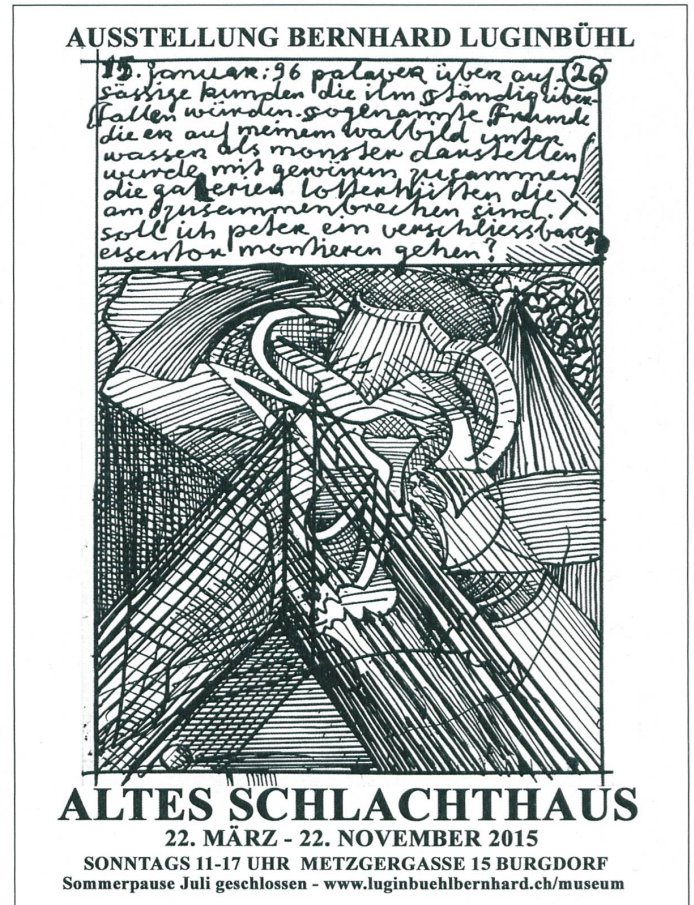 AUSSTELLUNG BERNHARD LUGINBÜHL
15. januar: 96 palaver über auf- 26
sässige kunden die ihn ständig über-
fallen würden. sogenannte freunde
die er auf meinem walbild unter
wasser als monster darstellen
würde mit gewürm zusammen
die galerien lotterhütten die
am zusammenbrechen sind.
soll ich peter ein verschliessbares
eisentor montieren gehen?
ALTES SCHLACHTHAUS
22. MÄRZ - 22. NOVEMBER 2015
SONNTAGS 11-17 UHR METZGERGASSE 15 BURGDORF
Sommerpause Juli geschlossen - www.luginbuehlbernhard.ch/museum